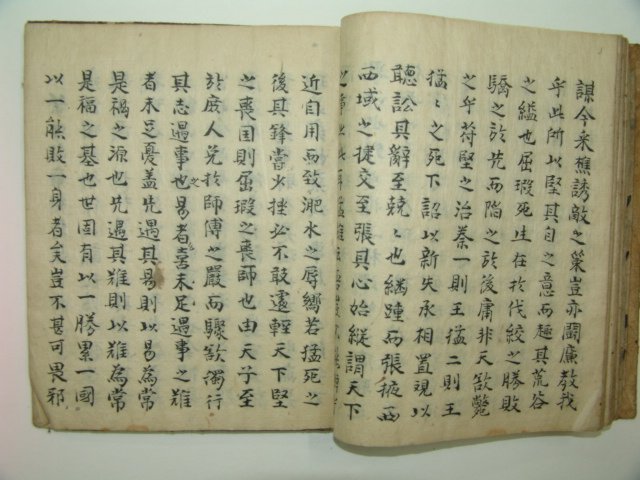 謀今采樵誘敵之策豈亦鬪廉教我
乎此所以堅其自之意而趣其荒谷
之縊也屈瑕死生在於伐絞之勝敗
驕之於先而陷之於後庸非天欲斃
之乎苻堅之治秦一則王猛二則王
猛〻之死下詔以新失丞相置觀以
聽訟其辭至兢〻也繼踵而張掖西
西域之捷交至張其心始縱謂天下
近自用而致淝水之辱嚮若猛死之
後其鋒嘗少挫必不敢遽輕天下堅
之喪国則屈瑕之喪師也由天子至
於庶人免於師傅之嚴而驟欲獨行
其志遇事之也易者喜未足遇事之難
者未足憂盖先遇其易則以易為常
是禍之源也先遇其難則以難為常
是福之基也世固有以一勝累一國
以一能敗一身者矣豈不甚可畏邪